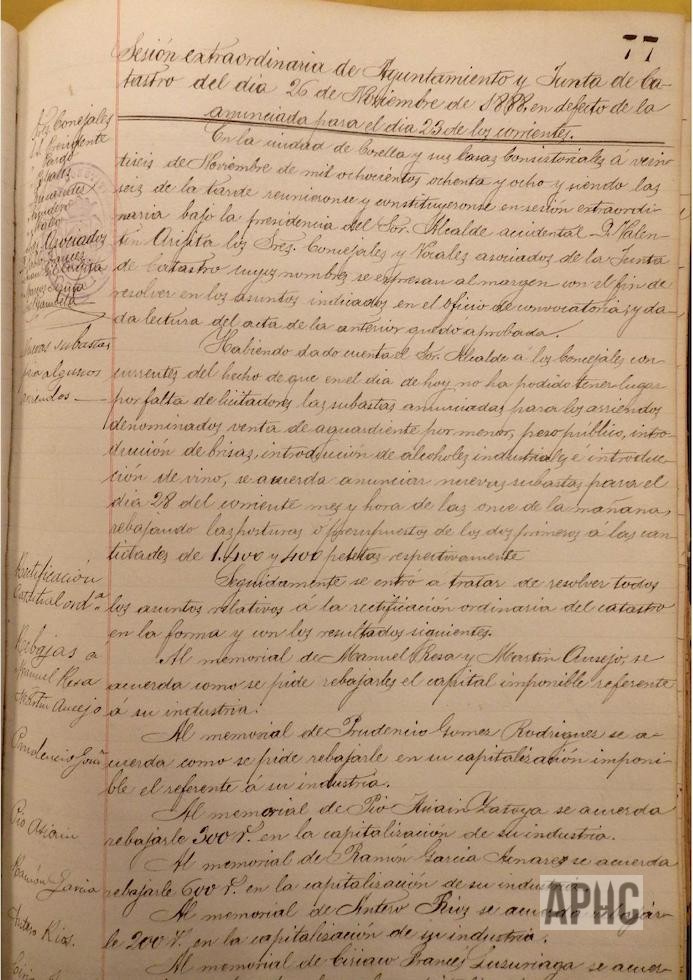 77
Sesión extraordinaria de Ayuntamiento y Junta de Ca-
tastro del dia 26 de Noviembre de 1888, en defecto de la
anunciada para el dia 23 de los corrientes.
Sres Concejales
Sr. Presidente
Sres Asociados
En la ciudad de Corella y sus Casas Consistoriales á vein
tiseis de Noviembre de mil ochocientos ochenta y ocho y siendo las
seis de la tarde reunieronse y constituyeronse en sesión extraordi-
naria bajo la presidencia del Sor. Alcalde accidental D. Valen-
tin Arieta los Sres. Concejales y Vocales asociados de la Junta
de Catastro cuyos nombres se expresan al margen con el fin de
resolver en los asuntos indicados en el oficio de convocatoria; y da-
da lectura del acta de la anterior quedó aprobada.
Nuevas subastas
para algunos
arriendos
Habiendo dado cuenta el Sor. Alcalde á los Concejales con-
currentes del hecho de que en el dia de hoy no ha podido tener lugar
por falta de licitadores las subastas anunciadas para los arriendos
denominados venta de aguardiente por menor, peso público, intro-
ducción de brisas, introducción de alcoholes industriales é introduc-
ción de vino, se acuerda anunciar nuevas subastas para el
dia 28 del corriente mes y hora de las once de la mañana,
rebajando las posturas ó presupuestos de los dos primeros á las can-
tidades de 1.400 y 400 pesetas respectivamente
Rectificación
Catastral ord.ª
Seguidamente se entró a tratar de resolver todos
los asuntos relativos á la rectificación ordinaria del catastro
en la forma y con los resultados siguientes.
Rebajas a
Manuel Resa
Martin Ausejo
Al memorial de Manuel Resa y Martin Ausejo, se
acuerda como se pide rebajarles el capital imponible referente
á su industria.
Prudencio Gom
Al memorial de Prudencio Gomez Rodriguez se a-
cuerda como se pide rebajarle en su capitalización imponi-
ble el referente á su industria.
Pio Asiain
Al memorial de Pio Asiain Zatoya se acuerda
rebajarle 300 r.s en la capitalización de su industria.
Ramón Garcia
Al memorial de Ramón Garcia Aznarez se acuerda
rebajarle 600 r.s en la capitalización de su industria
Antero Rios.
Al memorial de Antero Rios se acuerda rebajar-
le 200 r.s en la capitalización de su industria.
Al memorial de Ciriaco Frances Luzuriaga se acuer-
APHC